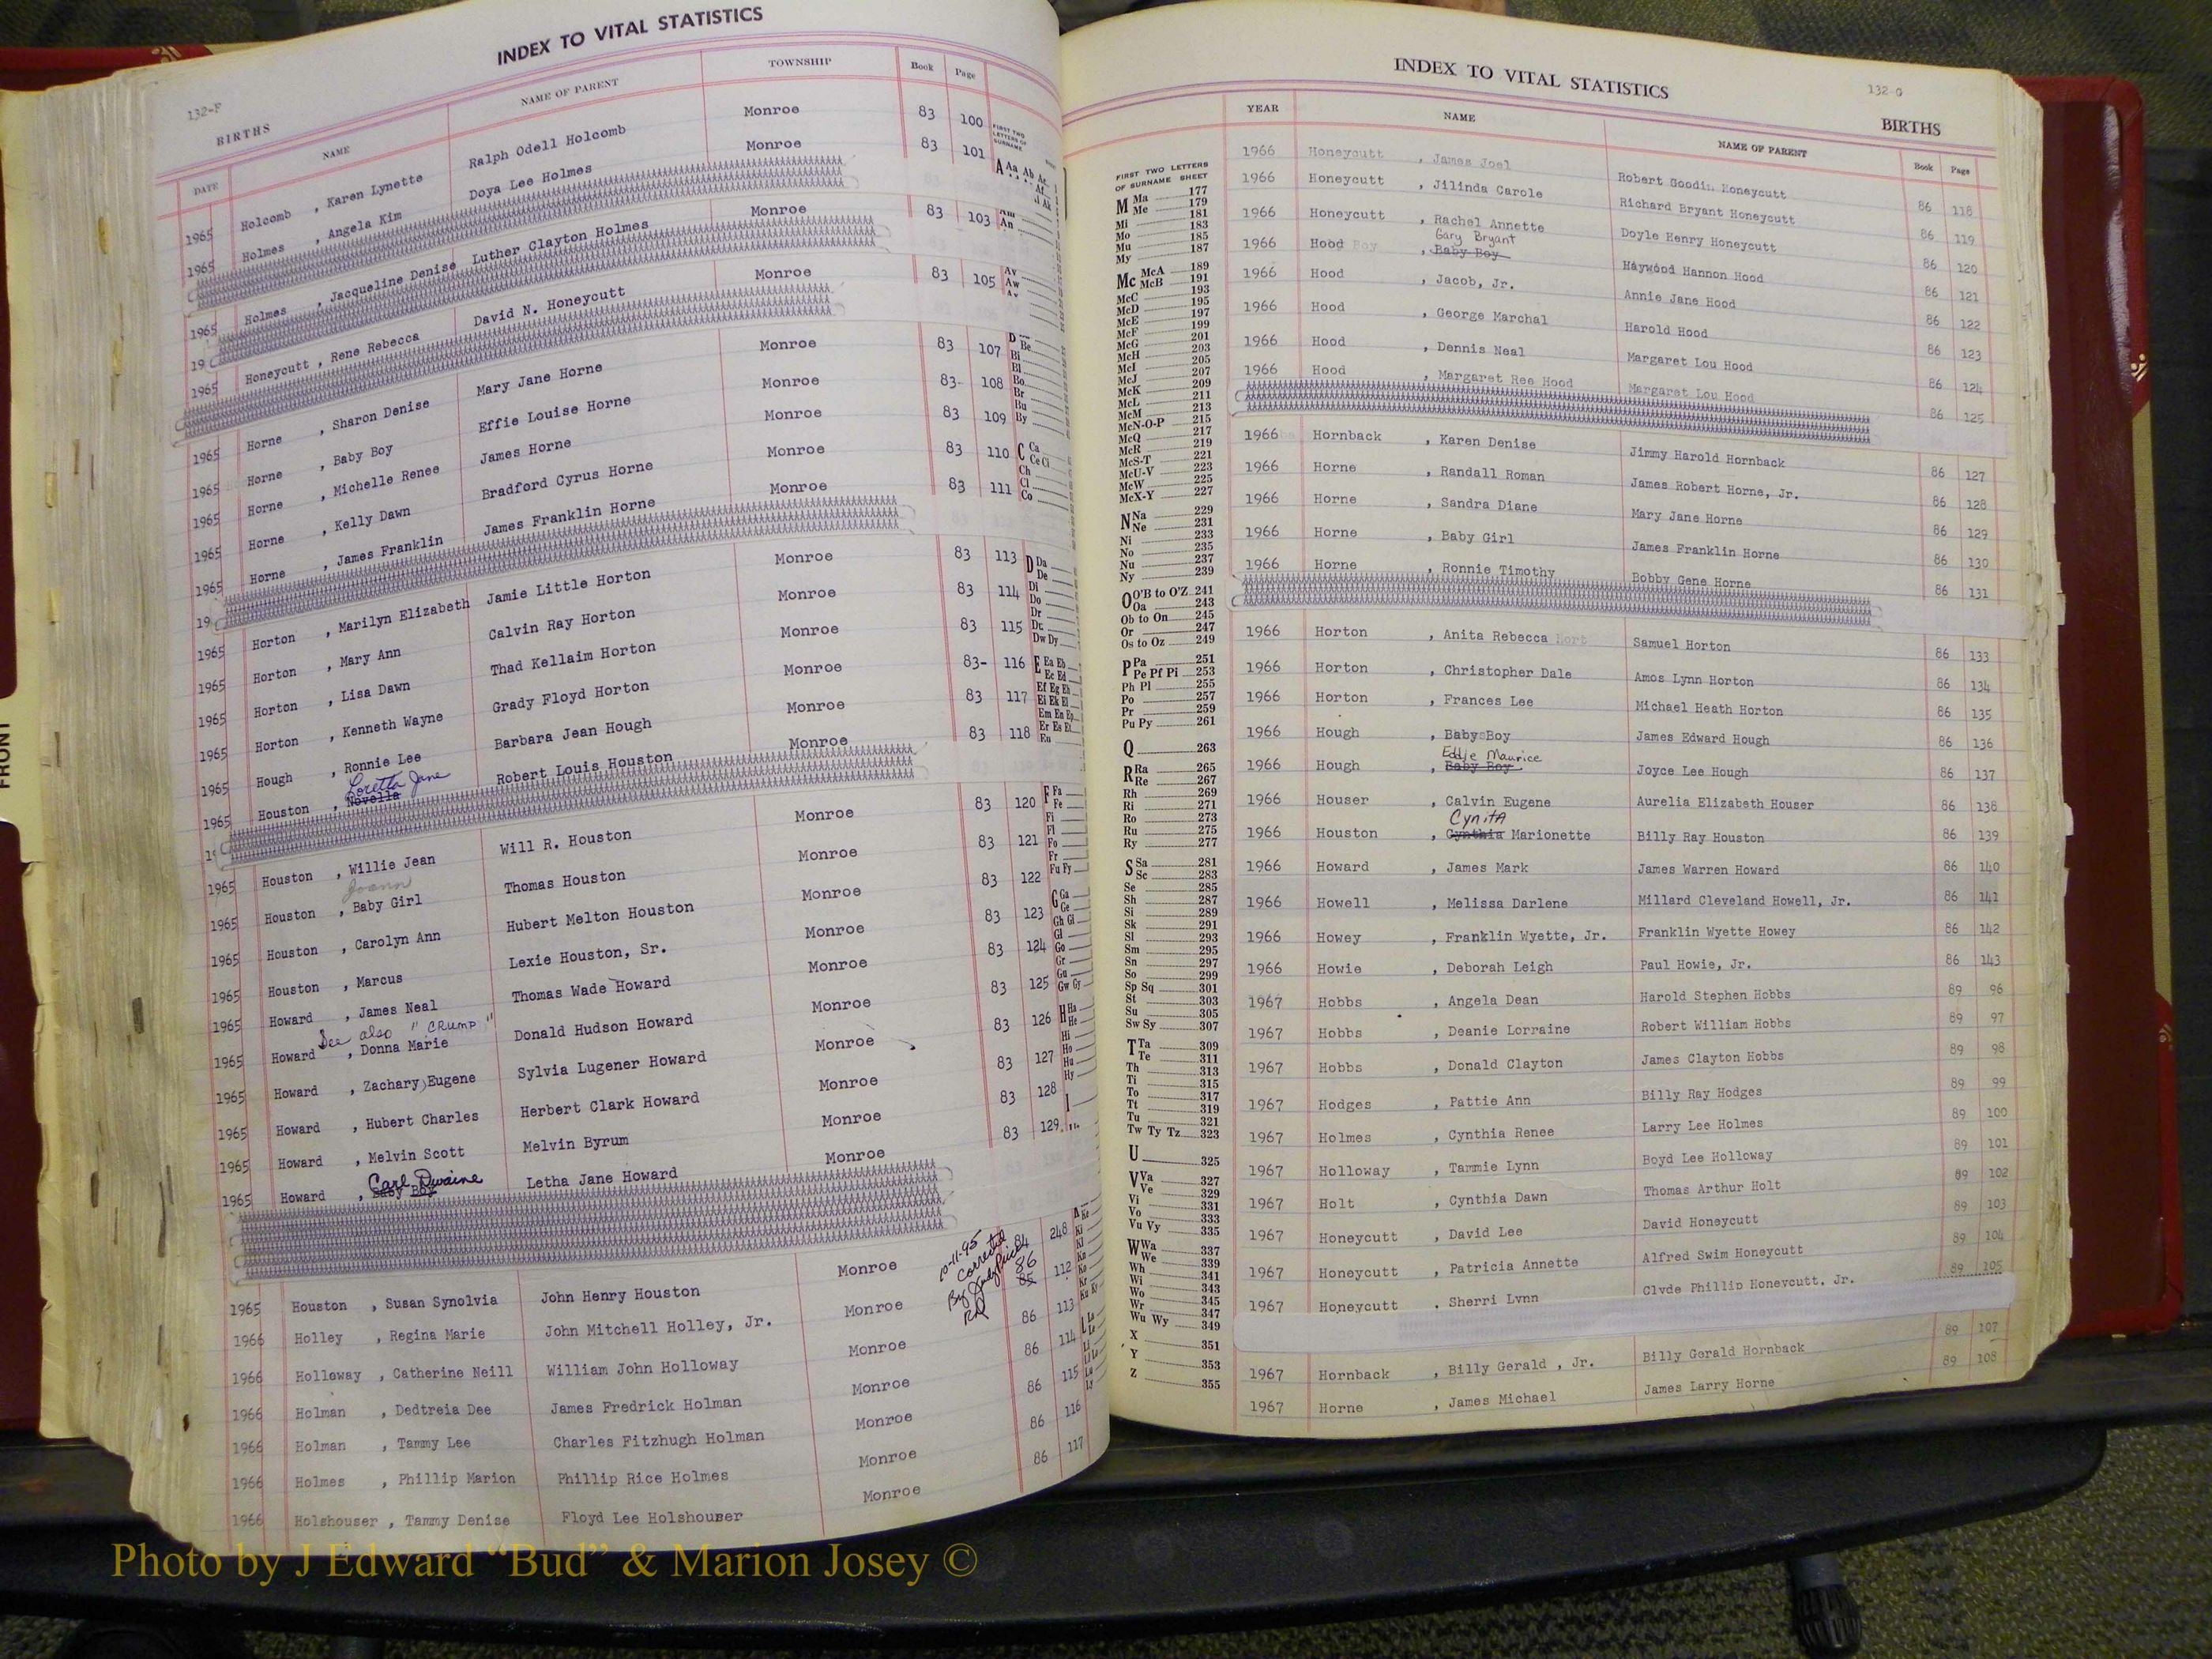 INDEX TO VITAL STATISTICS
132-F
BIRTHS
DATE NAME NAME OF PARENT TOWNSHIP Book Page
1965 Holcomb , Karen Lynette Ralph Odell Holcomb Monroe 83 100
1965 Holmes , Angela Kim Doya Lee Holmes Monroe 83 101
1965 Holmes , Jacqueline Denise Luther Clayton Holmes Monroe 83 103
1965 Honeycutt , Rene Rebecca David N. Honeycutt Monroe 83 105
1965 Horne , Sharon Denise Mary Jane Horne Monroe 83 107
1965 Horne , Baby Boy Effie Louise Horne Monroe 83- 108
1965 Horne , Michelle Renee James Horne Monroe 83 109
1965 Horne , Kelly Dawn Bradford Cyrus Horne Monroe 83 110
1965 Horne , James Franklin James Franklin Horne Monroe 83 111
1965 Horton , Marilyn Elizabeth Jamie Little Horton Monroe 83 113
1965 Horton , Mary Ann Calvin Ray Horton Monroe 83 114
1965 Horton , Lisa Dawn Thad Kellaim Horton Monroe 83 115
1965 Horton , Kenneth Wayne Grady Floyd Horton Monroe 83- 116
1965 Hough , Ronnie Lee Barbara Jean Hough Monroe 83 117
Loretta Jane
1965 Houston , Novella Robert Louis Houston Monroe 83 118
1965 Houston , Willie Jean Will R. Houston Monroe 83 120
Joann
1965 Houston , Baby Girl Thomas Houston Monroe 83 121
1965 Houston , Carolyn Ann Hubert Melton Houston Monroe 83 122
1965 Houston , Marcus Lexie Houston, Sr. Monroe 83 123
1965 Howard , James Neal Thomas Wade Howard Monroe 83 124
See also "Crump"
1965 Howard , Donna Marie Donald Hudson Howard Monroe 83 125
1965 Howard , Zachary Eugene Sylvia Lugener Howard Monroe 83 126
1965 Howard , Hubert Charles Herbert Clark Howard Monroe 83 127
1965 Howard , Melvin Scott Melvin Byrum Monroe 83 128
Carl Dwaine
1965 Howard , Baby Boy Letha Jane Howard Monroe 83 129
10-11-95 corrected By Judy Price RD
1965 Houston , Susan Synolvia John Henry Houston Monroe 84 248
1966 Holley , Regina Marie John Mitchell Holley, Jr. Monroe 86 85 112
1966 Holloway , Catherine Neill William John Holloway Monroe 86 113
1966 Holman , Dedtreia Dee James Fredrick Holman Monroe 86 114
1966 Holman , Tammy Lee Charles Fitzhugh Holman Monroe 86 115
1966 Holmes , Phillip Marion Phillip Rice Holmes Monroe 86 116
1966 Holshouser , Tammy Denise Floyd Lee Holshouser Monroe 86 117
FRONT
INDEX TO VITAL STATISTICS
132-G
BIRTHS
YEAR NAME NAME OF PARENT Book Page
1966 Honeycutt , James Joel Robert Goodin Honeycutt 86 118
1966 Honeycutt , Jilinda Carole Richard Bryant Honeycutt 86 119
1966 Honeycutt , Rachel Annette Doyle Henry Honeycutt 86 120
Gary Bryant
1966 Hood , Baby Boy Haywood Hannon Hood 86 121
1966 Hood , Jacob, Jr. Annie Jane Hood 86 122
1966 Hood , George Marchal Harold Hood 86 123
1966 Hood , Dennis Neal Margaret Lou Hood 86 124
1966 Hood , Margaret Ree Hood Margaret Lou Hood 86 125
1966 Hornback , Karen Denise Jimmy Harold Hornback 86 127
1966 Horne , Randall Roman James Robert Horne, Jr. 86 128
1966 Horne , Sandra Diane Mary Jane Horne 86 129
1966 Horne , Baby Girl James Franklin Horne 86 130
1966 Horne , Ronnie Timothy Bobby Gene Horne 86 131
1966 Horton , Anita Rebecca Samuel Horton 86 133
1966 Horton , Christopher Dale Amos Lynn Horton 86 134
1966 Horton , Frances Lee Michael Heath Horton 86 135
1966 Hough , Baby Boy James Edward Hough 86 136
Eddie Maurice
1966 Hough , Baby Boy Joyce Lee Hough 86 137
1966 Houser , Calvin Eugene Aurelia Elizabeth Houser 86 138
Cynita
1966 Houston , Cynthia Marionette Billy Ray Houston 86 139
1966 Howard , James Mark James Warren Howard 86 140
1966 Howell , Melissa Darlene Millard Cleveland Howell, Jr. 86 141
1966 Howey , Franklin Wyette, Jr. Franklin Wyette Howey 86 142
1966 Howie , Deborah Leigh Paul Howie, Jr. 86 143
1967 Hobbs , Angela Dean Harold Stephen Hobbs 89 96
1967 Hobbs , Deanie Lorraine Robert William Hobbs 89 97
1967 Hobbs , Donald Clayton James Clayton Hobbs 89 98
1967 Hodges , Pattie Ann Billy Ray Hodges 89 99
1967 Holmes , Cynthia Renee Larry Lee Holmes 89 100
1967 Holloway , Tammie Lynn Boyd Lee Holloway 89 101
1967 Holt , Cynthia Dawn Thomas Arthur Holt 89 102
1967 Honeycutt , David Lee David Honeycutt 89 103
1967 Honeycutt , Patricia Annette Alfred Swim Honeycutt 89 104
1967 Honeycutt , Sherri Lynn Clyde Phillip Honeycutt, Jr. 89 105
1967 Hornback , Billy Gerald , Jr. Billy Gerald Hornback 89 107
1967 Horne , James Michael James Larry Horne 89 108
FIRST TWO LETTERS
OF SURNAME SHEET
M Ma 177
Me 179
Mi 181
Mo 183
Mu 185
My 187
Mc McA 189
McB 191
McC 193
McD 195
McE 197
McF 199
McG 201
McH 203
McI 205
McJ 207
McK 209
McL 211
McM 213
McN-O-P 215
McQ 217
McR 219
McS-T 221
McU-V 223
McW 225
McX-Y 227
N Na 229
Ne 231
Ni 233
No 235
Nu 237
Ny 239
O O'B to O'Z 241
Oa 243
Ob to On 245
Or 247
Os to Oz 249
P Pa 251
Pe Pf Pi 253
Ph Pl 255
Po 257
Pr 259
Pu Py 261
Q 263
R Ra 265
Re 267
Rh 269
Ri 271
Ro 273
Ru 275
Ry 277
S Sa 281
Sc 283
Se 285
Sh 287
Si 289
Sk 291
Sl 293
Sm 295
Sn 297
So 299
Sp Sq 301
St 303
Su 305
Sw Sy 307
T Ta 309
Te 311
Th 313
Ti 315
To 317
Tt 319
Tu 321
Tw Ty Tz 323
U 325
V Va 327
Ve 329
Vi 331
Vo 333
Vu Vy 335
W Wa 337
We 339
Wh 341
Wi 343
Wo 345
Wr 347
Wu Wy 349
X 351
Y 353
Z 355
Photo by J Edward “Bud” & Marion Josey ©